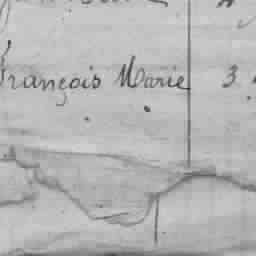 François Marie 3